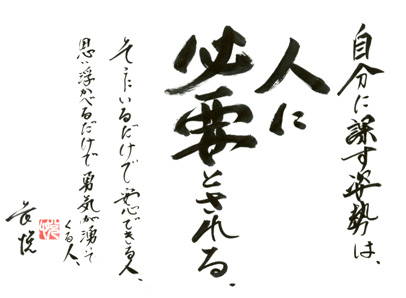 自分に課す姿勢は、
人に
必要とされる、
そこにいるだけで安心できる人、
思い浮かべるだけで勇気が湧いて
くる人、